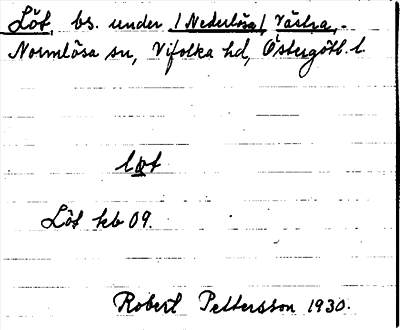 Löt, bs. under /Nederlösa/ Västra,
Normlösa sn, Vifolka hd, Östergötl. l.
Löt kb 09.
Robert Pettersson 1930.